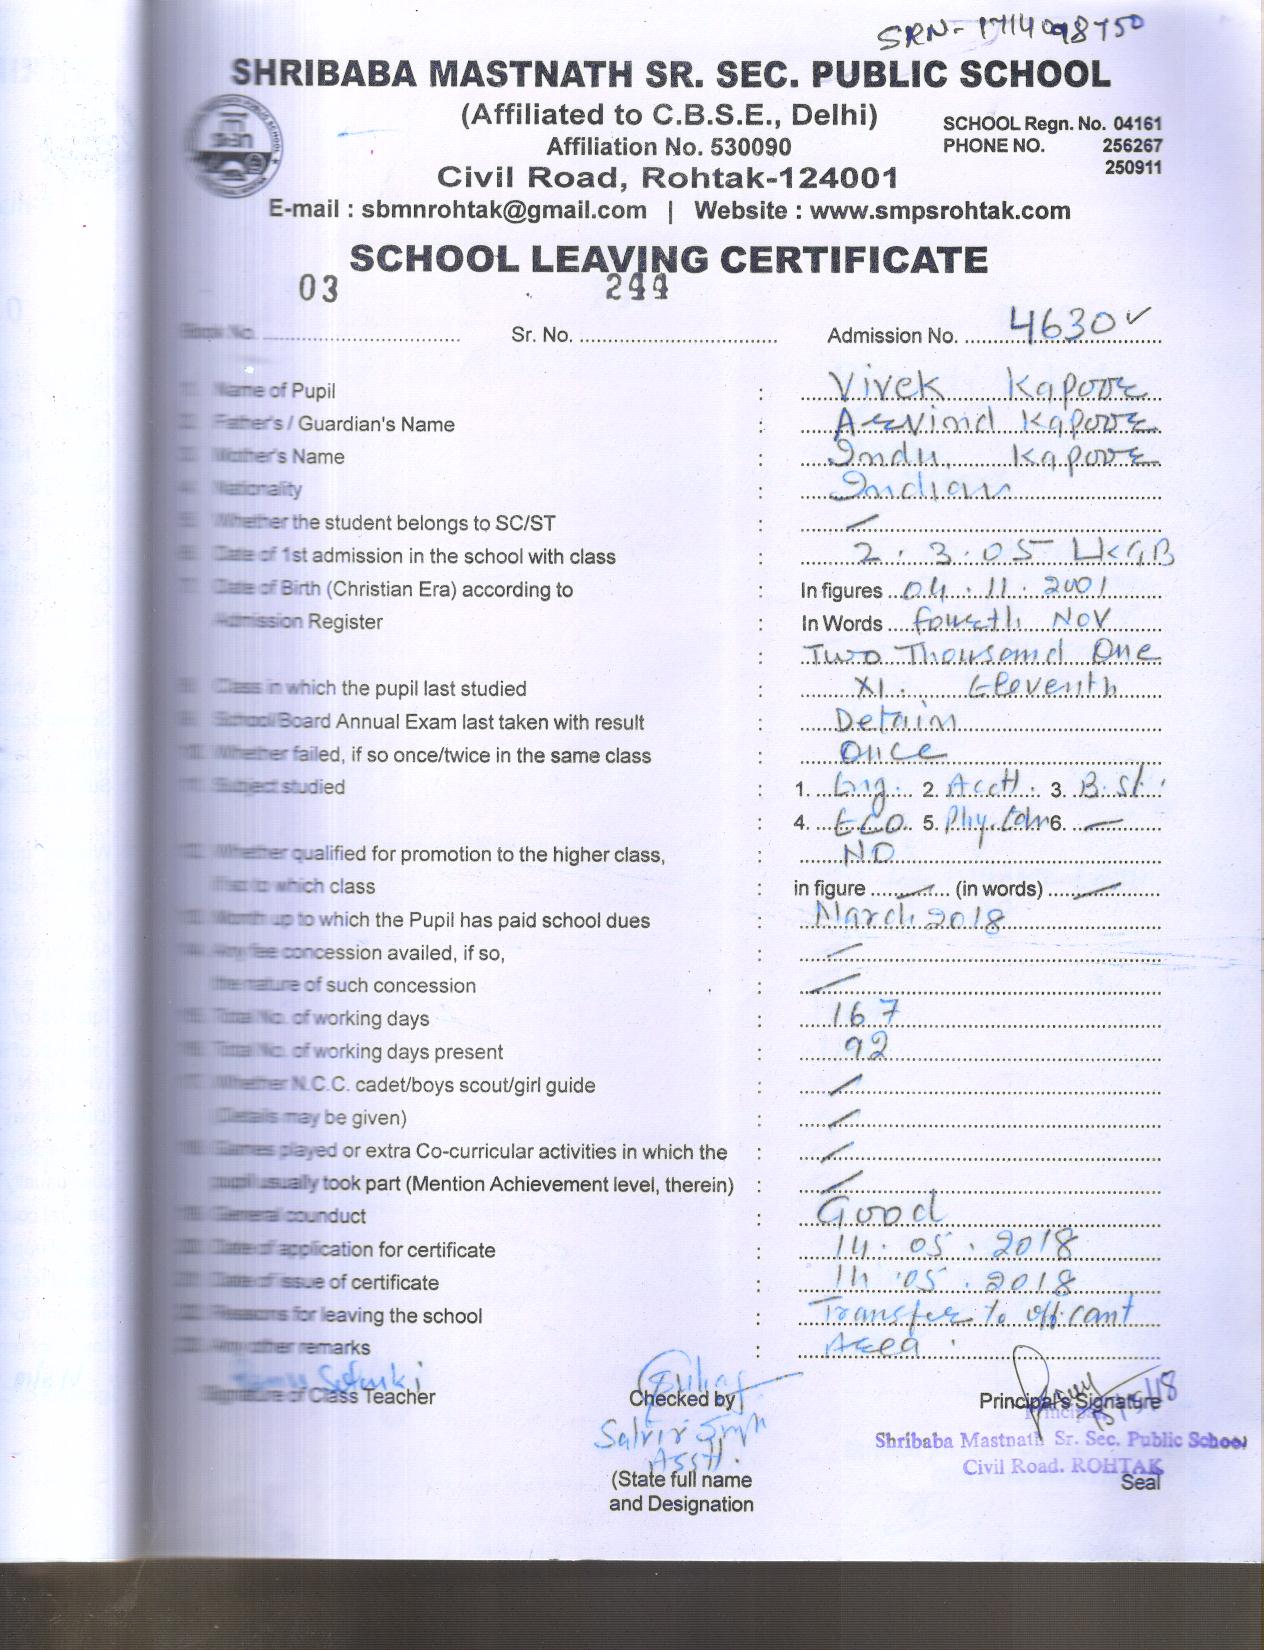 SRN- 1714098750
SHRIBABA MASTNATH SR. SEC. PUBLIC SCHOOL
(Affiliated to C.B.S.E., Delhi)
SCHOOL Regn. No. 04161
Affiliation No. 530090
PHONE NO. 256267
250911
Civil Road, Rohtak-124001
E-mail : sbmnrohtak@gmail.com | Website : www.smpsrohtak.com
SCHOOL LEAVING CERTIFICATE
03 244
Book No. Sr. No. Admission No. 4630 ✓
1. Name of Pupil : Vivek Kapoor
2. Father's / Guardian's Name : Arvind Kapoor
3. Mother's Name : Indu Kapoor
4. Nationality : Indian
5. Whether the student belongs to SC/ST : /
6. Date of 1st admission in the school with class : 2.3.05 LKG B
7. Date of Birth (Christian Era) according to : In figures 04.11.2001
Admission Register : In Words Fourth Nov
: Two Thousand One
8. Class in which the pupil last studied : XI. Eleventh
9. School/Board Annual Exam last taken with result : Detain
10. Whether failed, if so once/twice in the same class : Once
11. Subject studied : 1. Eng. 2. Acctt. 3. B.st.
: 4. ECO. 5. Phy. Edn 6. —
12. Whether qualified for promotion to the higher class, : NO
If so to which class : in figure — (in words) —
13. Month up to which the Pupil has paid school dues : March 2018
14. Any fee concession availed, if so, : /
the nature of such concession : /
15. Total No. of working days : 167
16. Total No. of working days present : 92
17. Whether N.C.C. cadet/boys scout/girl guide : /
(Details may be given) : /
18. Games played or extra Co-curricular activities in which the : /
pupil usually took part (Mention Achievement level, therein) : /
19. General counduct : Good
20. Date of application for certificate : 14.05.2018
21. Date of issue of certificate : 14.05.2018
22. Reasons for leaving the school : Transfer to
23. Any other remarks : Area
Signature of Class Teacher Checked by Principal's Signature
Principal
Shribaba Mastnath Sr. Sec. Public School
Asstt.
Civil Road. ROHTAK
(State full name Seal
and Designation